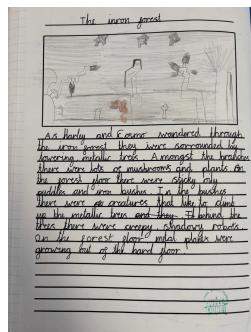 The inron forest
As Harley and Cosmo wandered through
the iron forest they were sorrounded by
towering metallic trees. Amongst the branches
there were lots of mushrooms and plants. On
the forest floor there were sticky oily
puddles and iron bushes. In the bushes
there were creatures that like to climb
up the metallic trees and they. Behind the
trees there were creepy, shadowy robots.
On the forest floor metal plants were
growing out of the hard floor.